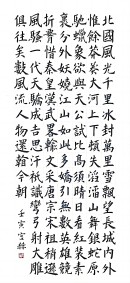 北國風光千里冰封萬里雪飄望長城內外
惟餘莽莽大河上下頓失滔滔山舞銀蛇原
馳蠟象欲與天公試比高須晴日看紅裝素
裹分外妖嬈江山如此多嬌引無數英雄競
折腰惜秦皇漢武略輸文采唐宗宋祖稍遜
風騷一代天驕成吉思汗秖識彎弓射大雕
俱往矣數風流人物還看今朝
壬寅